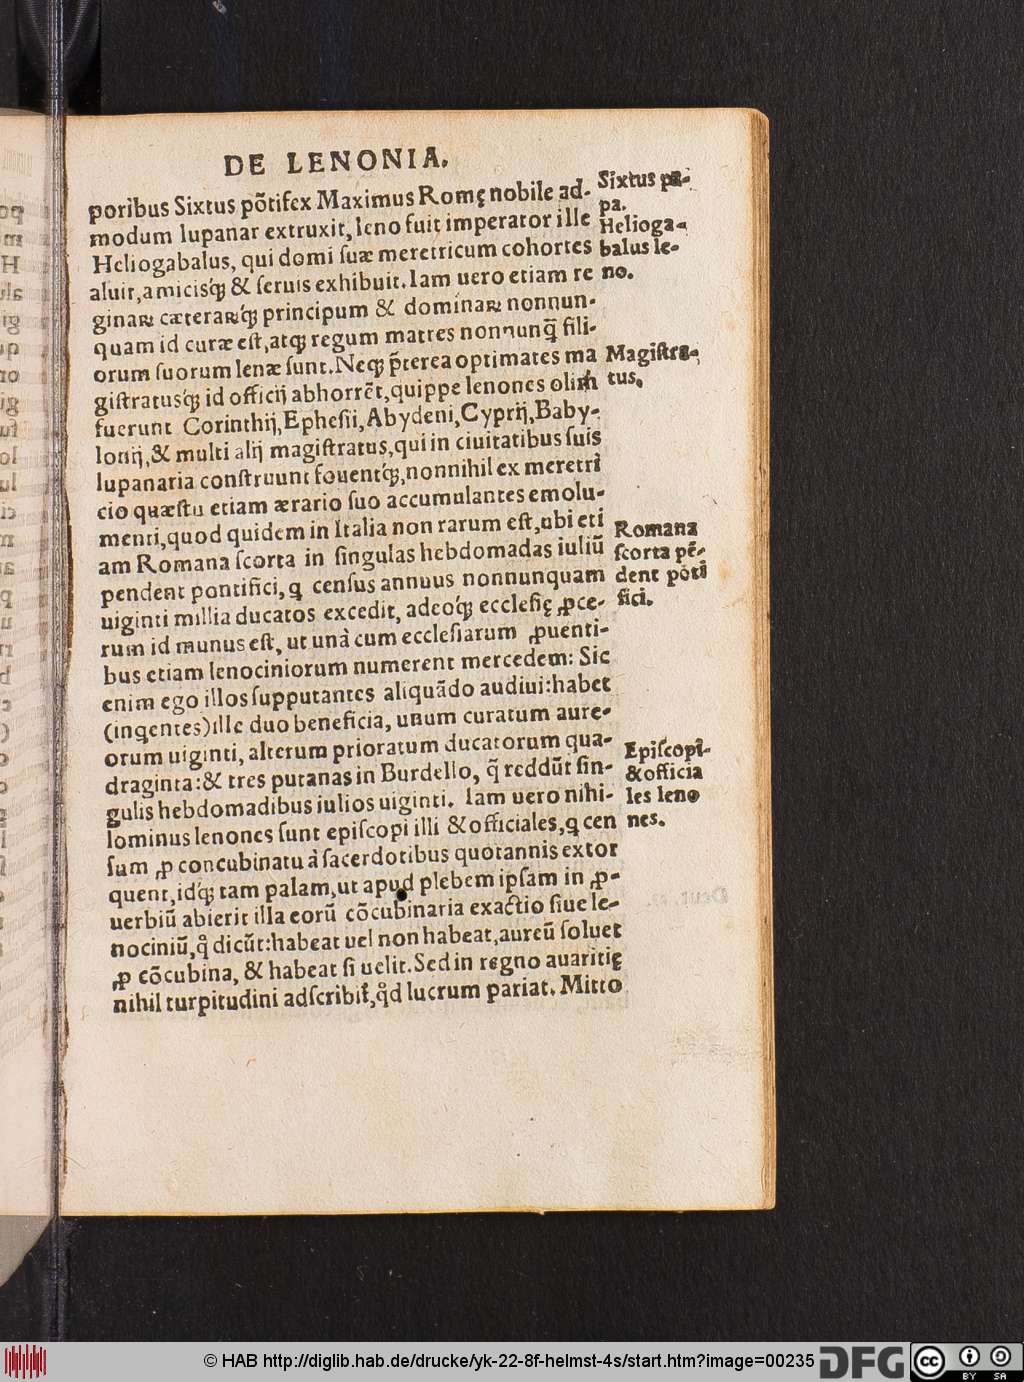 DE LENONIA.
poribus Sixtus põtifex Maximus Romę nobile ad-
modum lupanar extruxit, leno fuit imperator ille
Heliogabalus, qui domi ſuæ meretricum cohortes
aluit, amicisq́ꝫ & ſeruis exhibuit. Iam uero etiam re
ginaꝝ cæteraꝝq́ꝫ principum & dominaꝝ nonnun-
quam id curæ eſt, atqꝫ regum matres nonnunq̃ fili-
orum ſuorum lenæ ſunt. Neqꝫ p̃terea optimates ma
giſtratusq́ꝫ id officij abhorrẽt, quippe lenones olim
fuerunt Corinthij, Epheſii, Abydeni, Cyprij, Baby-
lonij, & multi alij magiſtratus, qui in ciuitatibus ſuis
lupanaria conſtruunt fouentq́ꝫ, nonnihil ex meretri
cio quæſtu etiam ærario ſuo accumulantes emolu-
menti, quod quidem in Italia non rarum eſt, ubi eti
am Romana ſcorta in ſingulas hebdomadas iuliũ
pendent pontifici, q cenſus annuus nonnunquam
uiginti millia ducatos excedit, adeoq́ꝫ eccleſię ꝓce-
rum id munus eſt, ut unà cum eccleſiarum ꝓuenti-
bus etiam lenociniorum numerent mercedem: Sic
enim ego illos ſupputantes aliquãdo audiui: habet
(inqentes) ille duo beneficia, unum curatum aure-
orum uiginti, alterum prioratum ducatorum qua-
draginta: & tres putanas in Burdello, q̃ reddũt ſin-
gulis hebdomadibus iulios uiginti. Iam uero nihi-
lominus lenones ſunt epiſcopi illi & officiales, q cen
ſum ꝓ concubinatu à ſacerdotibus quotannis extor
quent, idq́ꝫ tam palam, ut apud plebem ipſam in ꝓ-
uerbiũ abierit illa eorũ cõcubinaria exactio ſiue le-
nociniũ, qđ dicũt: habeat uel non habeat, aureũ ſoluet
ꝓ cõcubina, & habeat ſi uelit. Sed in regno auaritię
nihil turpitudini adſcribit̃, qđ lucrum pariat. Mitto
Sixtus pa-
pa.
Helioga-
balus le-
no.
Magiſtra-
tus.
Romana
ſcorta pẽ-
dent põti
fici.
Epiſcopi
& officia
les leno
nes.
© HAB http://diglib.hab.de/drucke/yk-22-8f-helmst-4s/start.htm?image=00235
DFG
cc
BY SA